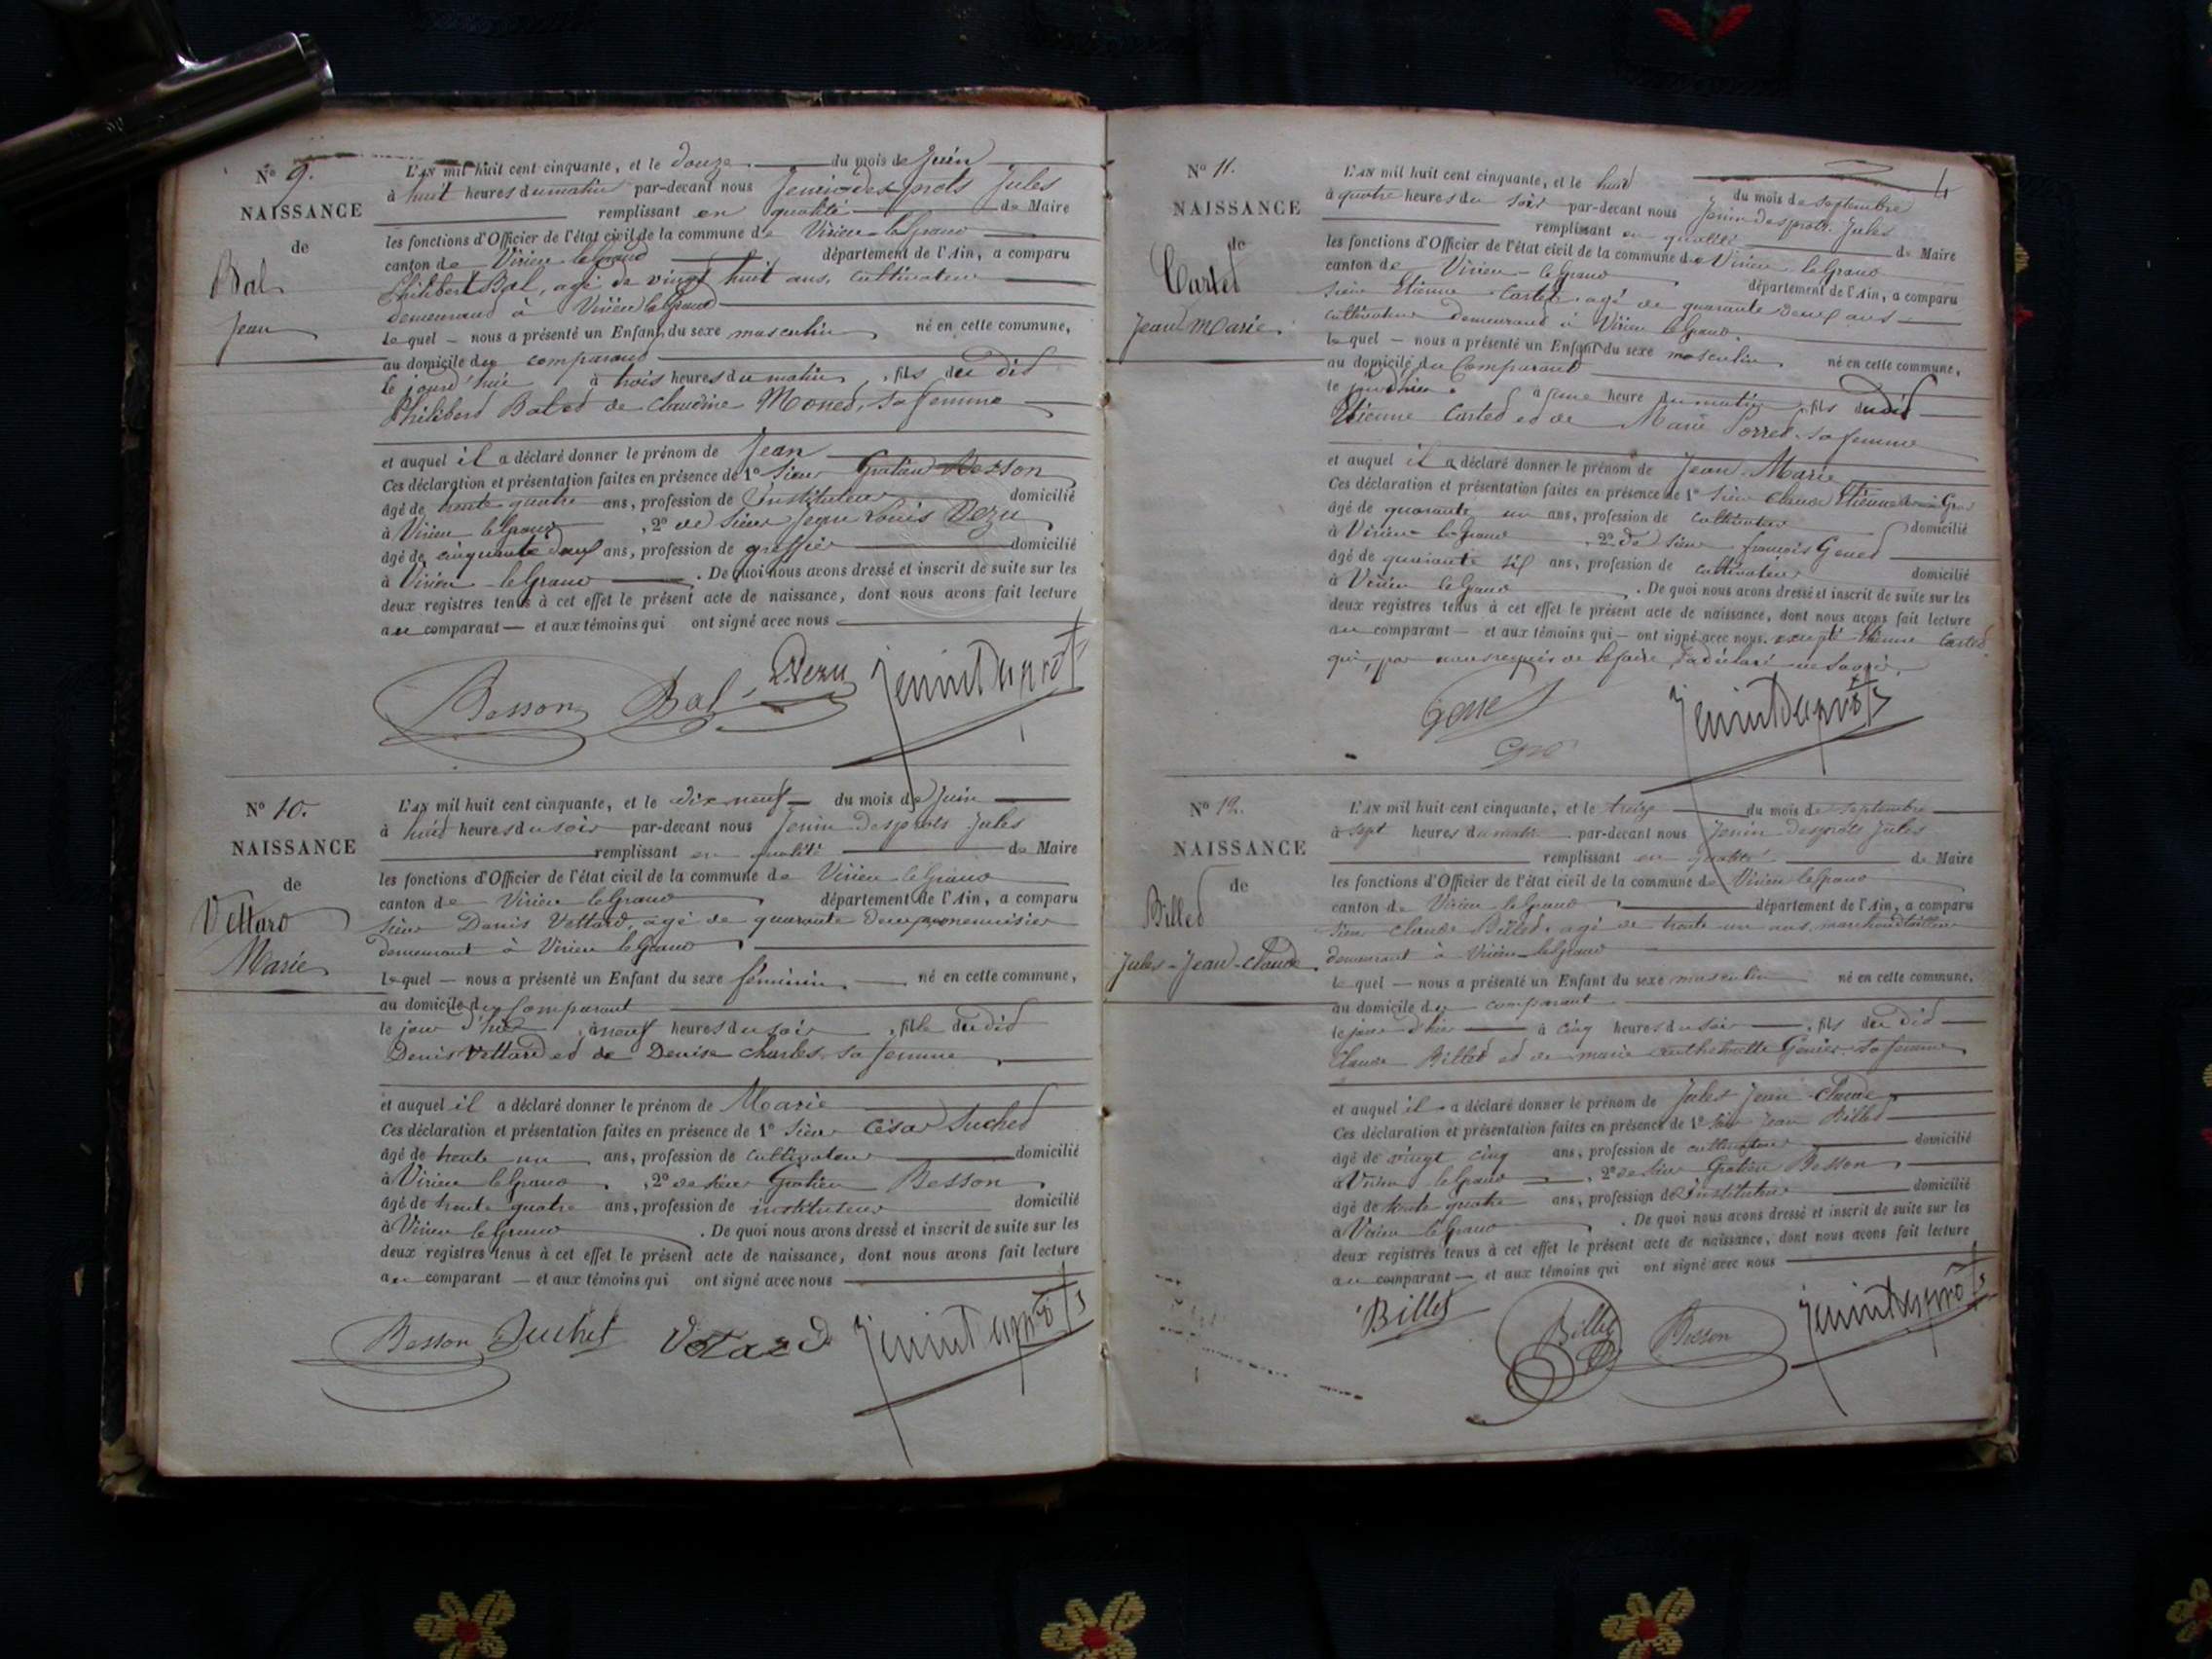 Nº 9.
NAISSANCE
de
Bal
Jean
L'AN mil huit cent cinquante, et le douze du mois de Juin
à huit heures du matin par-devant nous Jenin desprots Jules
remplissant en qualité de Maire
les fonctions d'Officier de l'état civil de la commune de Virieu le grand
canton de Virieu le grand département de l'Ain, a comparu
Philibert Bal, agé de vingt huit ans, cultivateur
demeurant à Virieu le grand
lequel nous a présenté un Enfant du sexe masculin né en cette commune,
au domicile du comparant
le jourd'hui à trois heures du matin, fils du dit
Philibert Bal et de Claudine Monet, sa femme
et auquel il a déclaré donner le prénom de Jean
Ces déclaration et présentation faites en présence de 1º sieur Gratien Besson
âgé de trente quatre ans, profession de Instituteur domicilié
à Virieu le grand, 2º de sieur Jean Louis Dezu
âgé de cinquante deux ans, profession de greffier domicilié
à Virieu le Grand. De quoi nous avons dressé et inscrit de suite sur les
deux registres tenus à cet effet le présent acte de naissance, dont nous avons fait lecture
au comparant et aux témoins qui ont signé avec nous
Besson Bal Dezu Jenindesprots
Nº 10.
NAISSANCE
de
Vettard
Marie
L'AN mil huit cent cinquante, et le dix neuf du mois de Juin
à huit heures du soir par-devant nous Jenin Desprots Jules
remplissant en qualité de Maire
les fonctions d'Officier de l'état civil de la commune de Virieu le Grand
canton de Virieu le Grand département de l'Ain, a comparu
sieur Denis Vettard, agé de quarante deux menuisier
demeurant à Virieu le Grand
lequel nous a présenté un Enfant du sexe féminin, né en cette commune,
au domicile du Comparant
le jour d'hier, à neuf heures du soir, fille du dit
Denis Vettard et de Denise Charles, sa femme
et auquel il a déclaré donner le prénom de Marie
Ces déclaration et présentation faites en présence de 1º sieur César Suchet
âgé de trente un ans, profession de cultivateur domicilié
à Virieu le grand, 2º de sieur Gratien Besson
âgé de trente quatre ans, profession de instituteur domicilié
à Virieu le Grand. De quoi nous avons dressé et inscrit de suite sur les
deux registres tenus à cet effet le présent acte de naissance, dont nous avons fait lecture
au comparant et aux témoins qui ont signé avec nous
Besson Suchet Jenindesprots
4
Nº 11.
NAISSANCE
de
Cartet
Jean Marie
L'AN mil huit cent cinquante, et le huit du mois de septembre
à quatre heures du soir par-devant nous Jenin Desprots Jules
remplissant en qualité de Maire
les fonctions d'Officier de l'état civil de la commune de Virieu le Grand
canton de Virieu le grand département de l'Ain, a comparu
sieur Etienne Cartet, agé de quarante deux ans
cultivateur demeurant à Virieu le Grand
lequel nous a présenté un Enfant du sexe masculin né en cette commune,
au domicile du Comparant
le jourd'hui à une heure du matin, fils dudit
Etienne Cartet et de Marie sa femme
et auquel il a déclaré donner le prénom de Jean Marie
Ces déclaration et présentation faites en présence de 1º sieur Claude Etienne Gros
âgé de quarante un ans, profession de cultivateur domicilié
à Virieu le Grand, 2º de sieur françois Genet
âgé de quarante six ans, profession de cultivateur domicilié
à Virieu le Grand. De quoi nous avons dressé et inscrit de suite sur les
deux registres tenus à cet effet le présent acte de naissance, dont nous avons fait lecture
au comparant et aux témoins qui ont signé avec nous, excepté Etienne Cartet
qui, par nous requis de le faire, a déclaré ne savoir
Genet Jenindesprots
Gros
Nº 12.
NAISSANCE
de
Billet
Jules-Jean-Claude
L'AN mil huit cent cinquante, et le treize du mois de septembre
à sept heures du matin par-devant nous Jenin Desprots Jules
remplissant en qualité de Maire
les fonctions d'Officier de l'état civil de la commune de Virieu le grand
canton de Virieu le Grand département de l'Ain, a comparu
sieur Claude Billet, agé de trente un ans, marchand tailleur
demeurant à Virieu-le-grand
lequel nous a présenté un Enfant du sexe masculin né en cette commune,
au domicile du comparant
le jour d'hier à cinq heures du soir, fils du dit
Claude Billet et de marie Genier sa femme
et auquel il a déclaré donner le prénom de Jules Jean Claude
Ces déclaration et présentation faites en présence de 1º sieur Jean Billet
âgé de vingt cinq ans, profession de cultivateur domicilié
à Virieu le Grand, 2º de sieur Gratien Besson
âgé de trente quatre ans, profession de Instituteur domicilié
à Virieu le Grand. De quoi nous avons dressé et inscrit de suite sur les
deux registres tenus à cet effet le présent acte de naissance, dont nous avons fait lecture
au comparant et aux témoins qui ont signé avec nous
Billet Billet Besson Jenindesprots